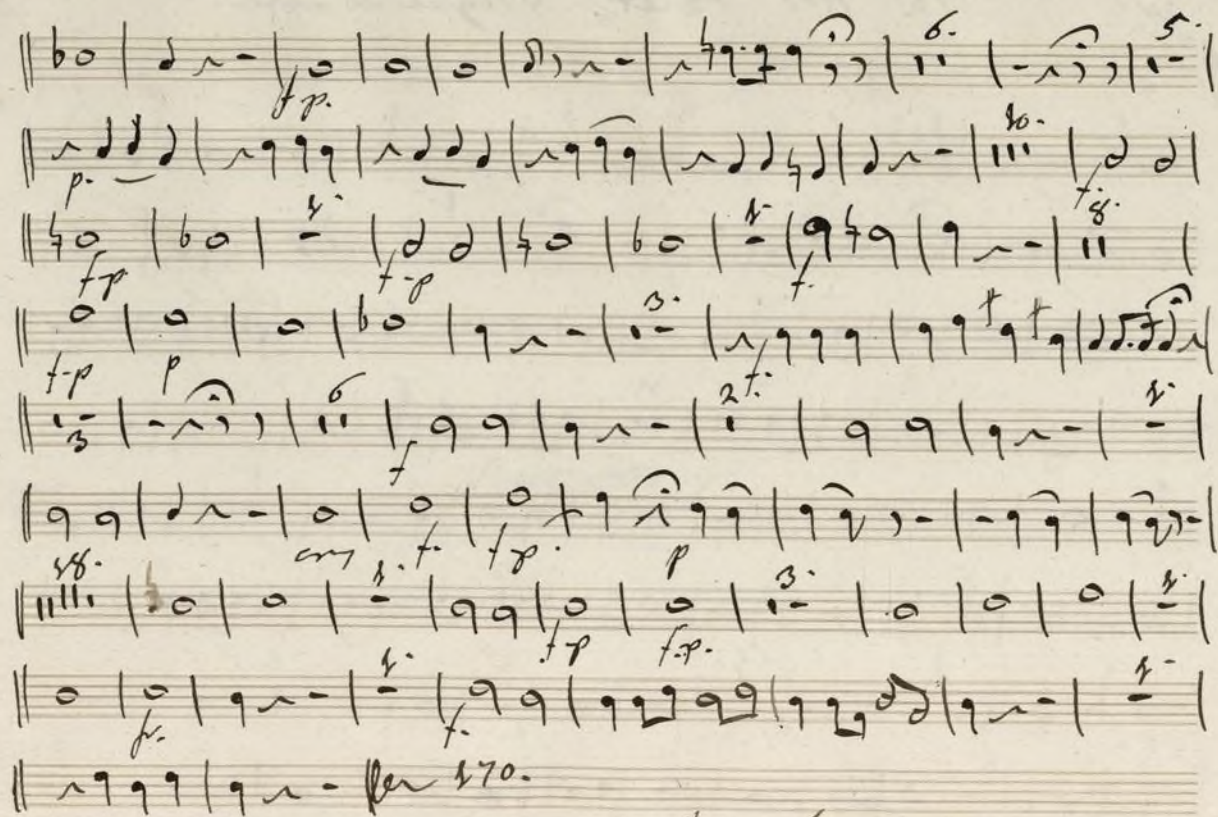 f p. 6. 5.
p. 10. f.
f-p 1. f-p 1. f. 8.
f-p p 3. f.
3 6 f 2 1.
f. f p. p
18. 1. f-p f.p. 3. 1.
1. f. 1.
170.